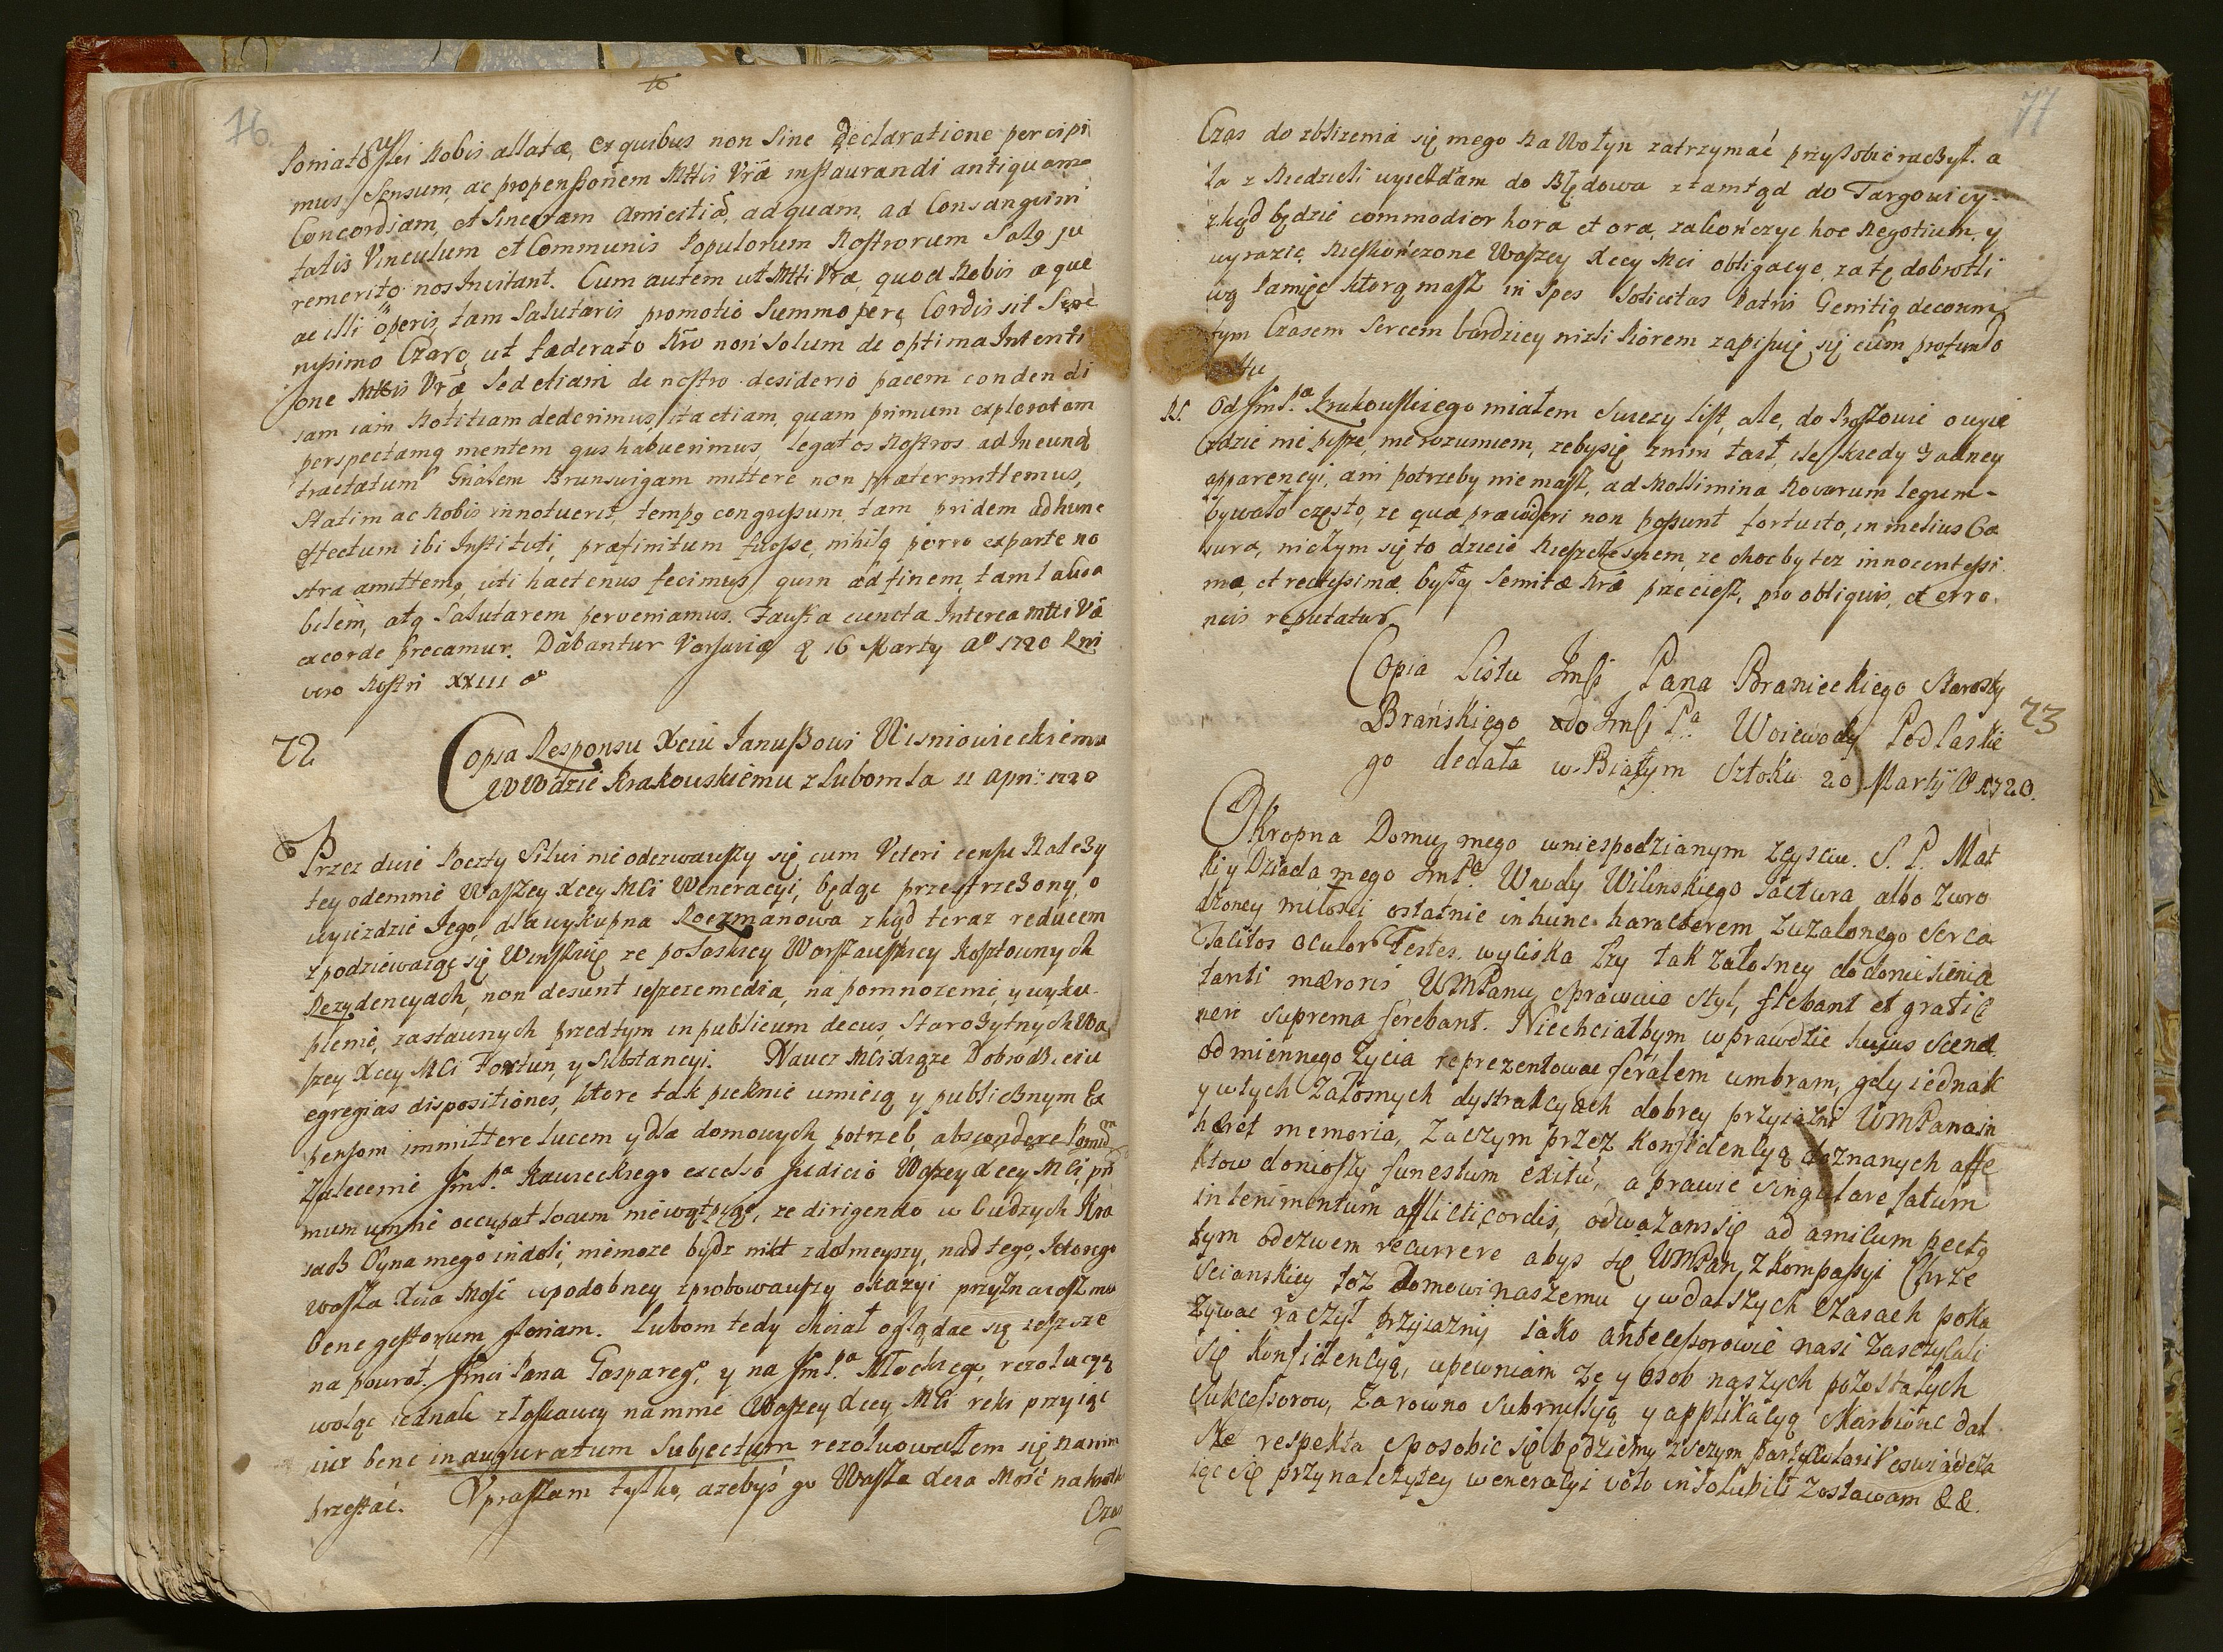 76.
Poniatowski Nobis allatæ, ex quibus non Sine Declaratione percipi
mus Sensum, ac propensionem Mttis Vræ instaurandi antiquam
Concordiam, et Sinceram Amicitiã, ad quam, ad Consanguini
tatis Vinculum et Communis Populorum Nostrorum Salq ju
remerito nos Invitant. Cum autem ut Mtti Vræ, quod Nobis æque
ac illi operis, tam Salutaris promotio Summopere Cordis sit Sere
nissimo Czaro, ut fæderato Nro non Solum de optima Intenti
one Mttis Vræ Sed etiam de nostro desiderio pacem condendi
iam Notitiam dederimus, ita etiam, quam primum exploratam
perspectamq mentem ejus habuerimus, legatos Nostros ad Ineund
tractatum Gnalem Brunsvigam mittere non prætermittemus,
Statim ac Nobis innotuerit, tempq congressum, tam pridem ad hunc
effectum ibi Instituti, præfinitum fuisse, nihilq porro ex parte no
stra amittemq, uti hactenus fecimus, quin ad finem, tam lauda
bilem, atq Salutarem perveniamus. Fausta cuncta Interea Mtti Væ
ex corde precamur. Dabantur Varsaviæ d 16 Marty Ao 1720 Rni
vero Nostri XXIII ao
72
Copia Responsu Xciu Janußowi Wisniowieckiemu
WWdzie Krakowskiemu z Lubomla 11 Apri: 1720
Przez dwie Poczty Silui nieodezwawszy się, cum Veteri censu Należy
tey odemnie Waszey Xcey Mci Weneracyi, będąc przestrzeżony, o
wyiezdzie Jego, dla wykupna Roczmanowa zkąd teraz reducem
spodziewaiąc się Winszuię ze po Laskiey Warszawskiey kosztownych
Rezydencyach, non desunt ieszcze media, na pomnozenie, y wyku-
pienie, zastawnych przedtym in publicum decus, Starożytnych Wa
szey Xcey Mci Fortun, y Substancyi. Naucz Mci Xiąze Dobrodzieiu
egregias dispositiones, ktore tak pieknie umieią y publicznym Ex
pensom immittere lucem y dla domowych potrzeb, abscondere
Zalecenie Jm P.a Kaweckiego excelso Judicio Waszey Xcey Mci, pri
mum umnie occupat locum niewątpiąc, ze dirigendo w Cudzych Kra
iach Syna mego indoli, niemoze bydz nikt zdolnieyszy, nad tego, ktorego
Wasza Xca Mość w podobney sprobowawszy okazyi przyznaiesz mu
bene gestorum gloriam. Lubom tedy chciał oglądac się ieszcze
na powrot Jmci Pana Gasparego, y na Jm P.a Młockiego, rezolucyą
woląc iednak z łaskawey namnie Waszey Xcey Mci ręki przyiąc
iuz bene inauguratum Subjectum rezolwowałem się na nim
przestać. Upraszam tylko, azebyś go Wasza Xca Mość na krotki
Czas
77
Czas do zblizenia się mego na Wołyn zatrzymać przy sobie raczył. a
ia z Niedzieli wyiezdzam do Błędowa ztamtąd do Targowicy
zkąd będzie commodior hora et ora, zakończyc hoc Negotium, y
wyrazic Nieskończone Waszey Xcey Mci obligacye, za tę dobrotli
wą Pamięc ktorą masz in Spes Solicitas Patris Genitiq decorum
tym Czasem Sercem bardziey nizli Piorem zapisuię się cum profundo
cultu
N. Od Jm P.a Krakowskiego miałem Swiezy list, ale, do Proszowic o wyie
zdzie nie pisze, nierozumiem, zebysię znim taił, ile kiedy zadney
apparencyi, ani potrzeby niemasz, ad Mollimina Novarum legum-
bywało często, ze quæ prævideri non possunt fortuito, in melius Ca
sura, nie zym się to dzieie Nieszczesciem, ze choc by tez innocentissi
mæ, et rectissimæ były Semitæ Nræ przecież, pro obliquis, et erro
neis reputatur
Copia Listu Jmśi Pana Branickiego Starosty
Brańskiego do Jmśi P.a Woiewody Podlaskie
go dedata w Białym Sztoku 20 Martij Ao 1720.
73
Okropna Domu mego wniespodzianym zeysciu. S. P. Mat
ki y Dziada mego Jm P.a Wwody Wilenskiego iactura albo zwro
dzoney miłosci ostatnie in hunc haracterem zuzalonego serca
Tacitos oculor Testes wyciska łzy tak załosney do doniesienia
tanti mæroris WMPanu sprawuie styl, flebant et gratiæ
neri suprema ferebant. Niechciałbym wprawdzie hujus scenæ
odmiennego życia reprezentowac feralem umbram, gdy iednak
y w tych załosnych dystrakcyach dobrey przyiazni WMPana in
hæret memoria, zaczym przez konfidencyą doznanych affe
ktow doniosszy funestum exitu, a prawie singulare fatum
in lenimentum afflicti cordis, odwazamsię ad amicum pectq
tym odezwem recurrere abys się WMPan, z kompassyi Chrze
scianskiey toz Domowi naszemu y w dalszych czasach poka
zywac raczył przyiazni iako antecessorowie nasi zasczycali
się konfidencyą, upewniam ze y osob naszych pozostałych
sukcessorow, zarowno submissyą y applikacyą skarbione dal
sze respekta sposobic się będziemy z czym partykularis oswiadcza
iąc się przynalezytey weneracyi voto insolubili zostawam &&.